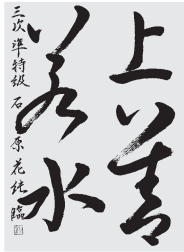 上善
若水
三次準特級 石原花純臨